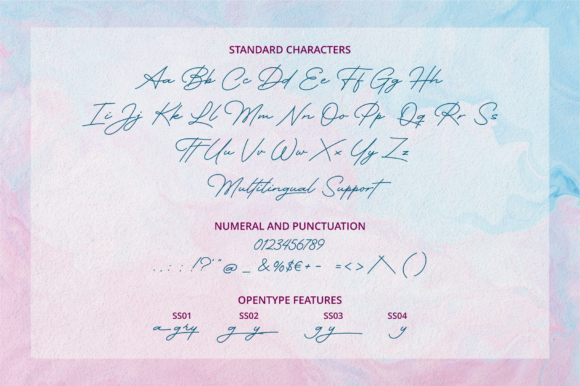 STANDARD CHARACTERS
Aa Bb Cc Dd Ee Ff Gg Hh
Ii Jj Kk Ll Mm Nn Oo Pp Qq Rr Ss
Tt Uu Vv Ww Xx Yy Zz
Multilingual Support
NUMERAL AND PUNCTUATION
0123456789
. , : ; !? ' " @ _ & % $ € + - = < > / \ ( )
OPENTYPE FEATURES
SS01 SS02 SS03 SS04
a g r y g y g y y